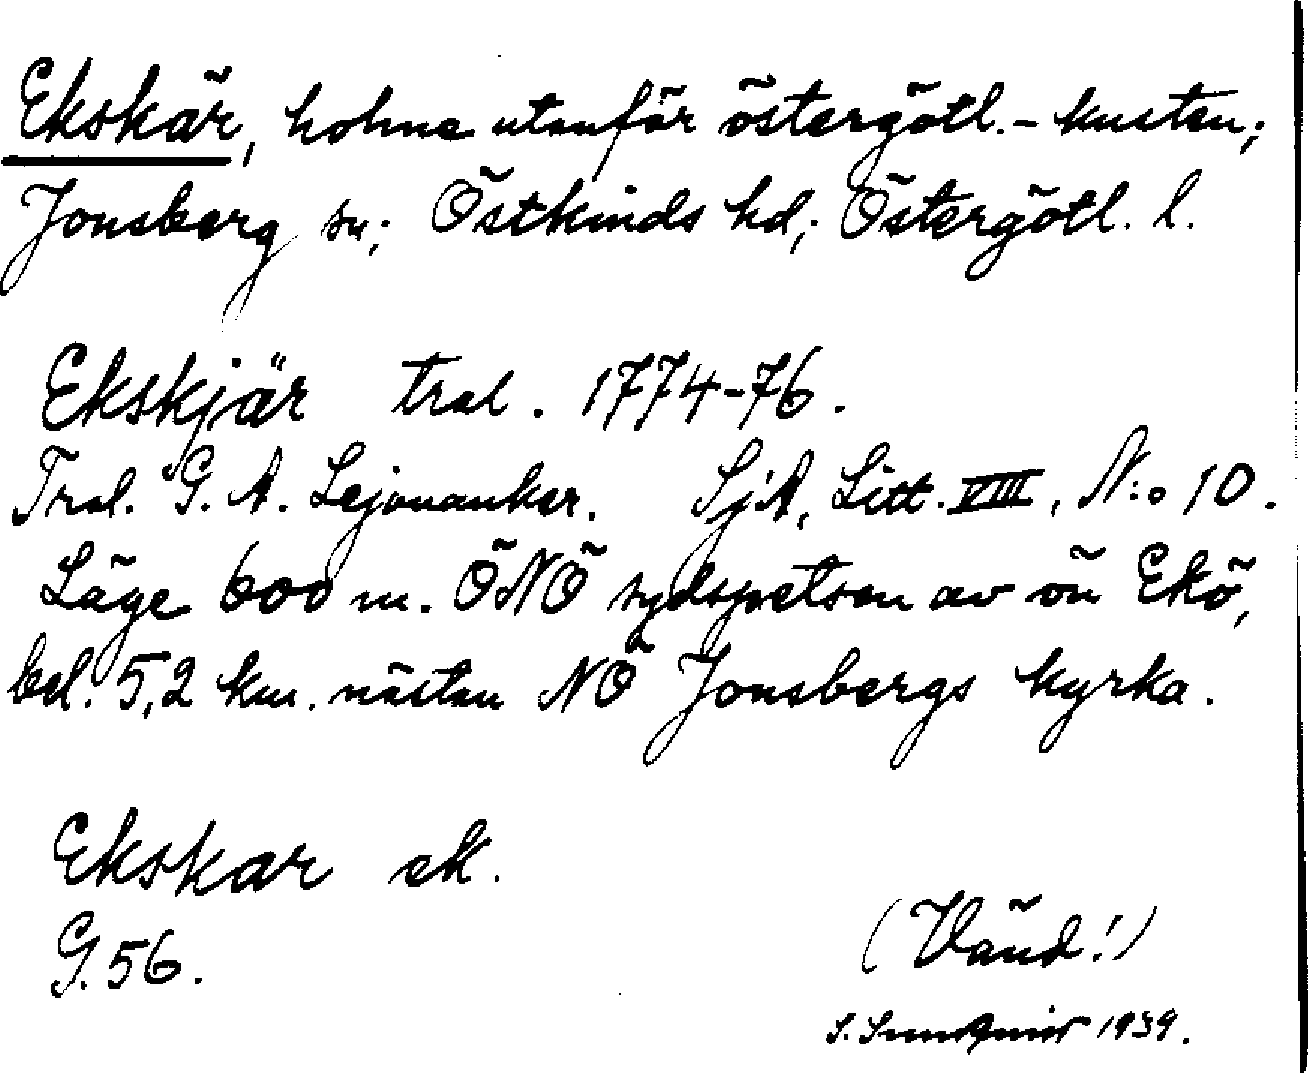 Ekskär, holme utanför östergötl.-kusten;
Jonsberg sn; Östkinds hd; Östergötl. l.
Ekskjär tral. 1774-76.
Tral. G. A. Lejonanker. SjA, Litt. VIII, N:o 10.
Läge 600 m. ÖNÖ sydspetsen av ön Ekö,
bel. 5,2 km. nästan NÖ Jonsbergs kyrka.
Ekskar ek.
G. 56.
(Vänd!)
S. 1939.